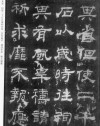 其有但使二千
石以歲時往祠
其有風旱禱請
祈求靡不報應